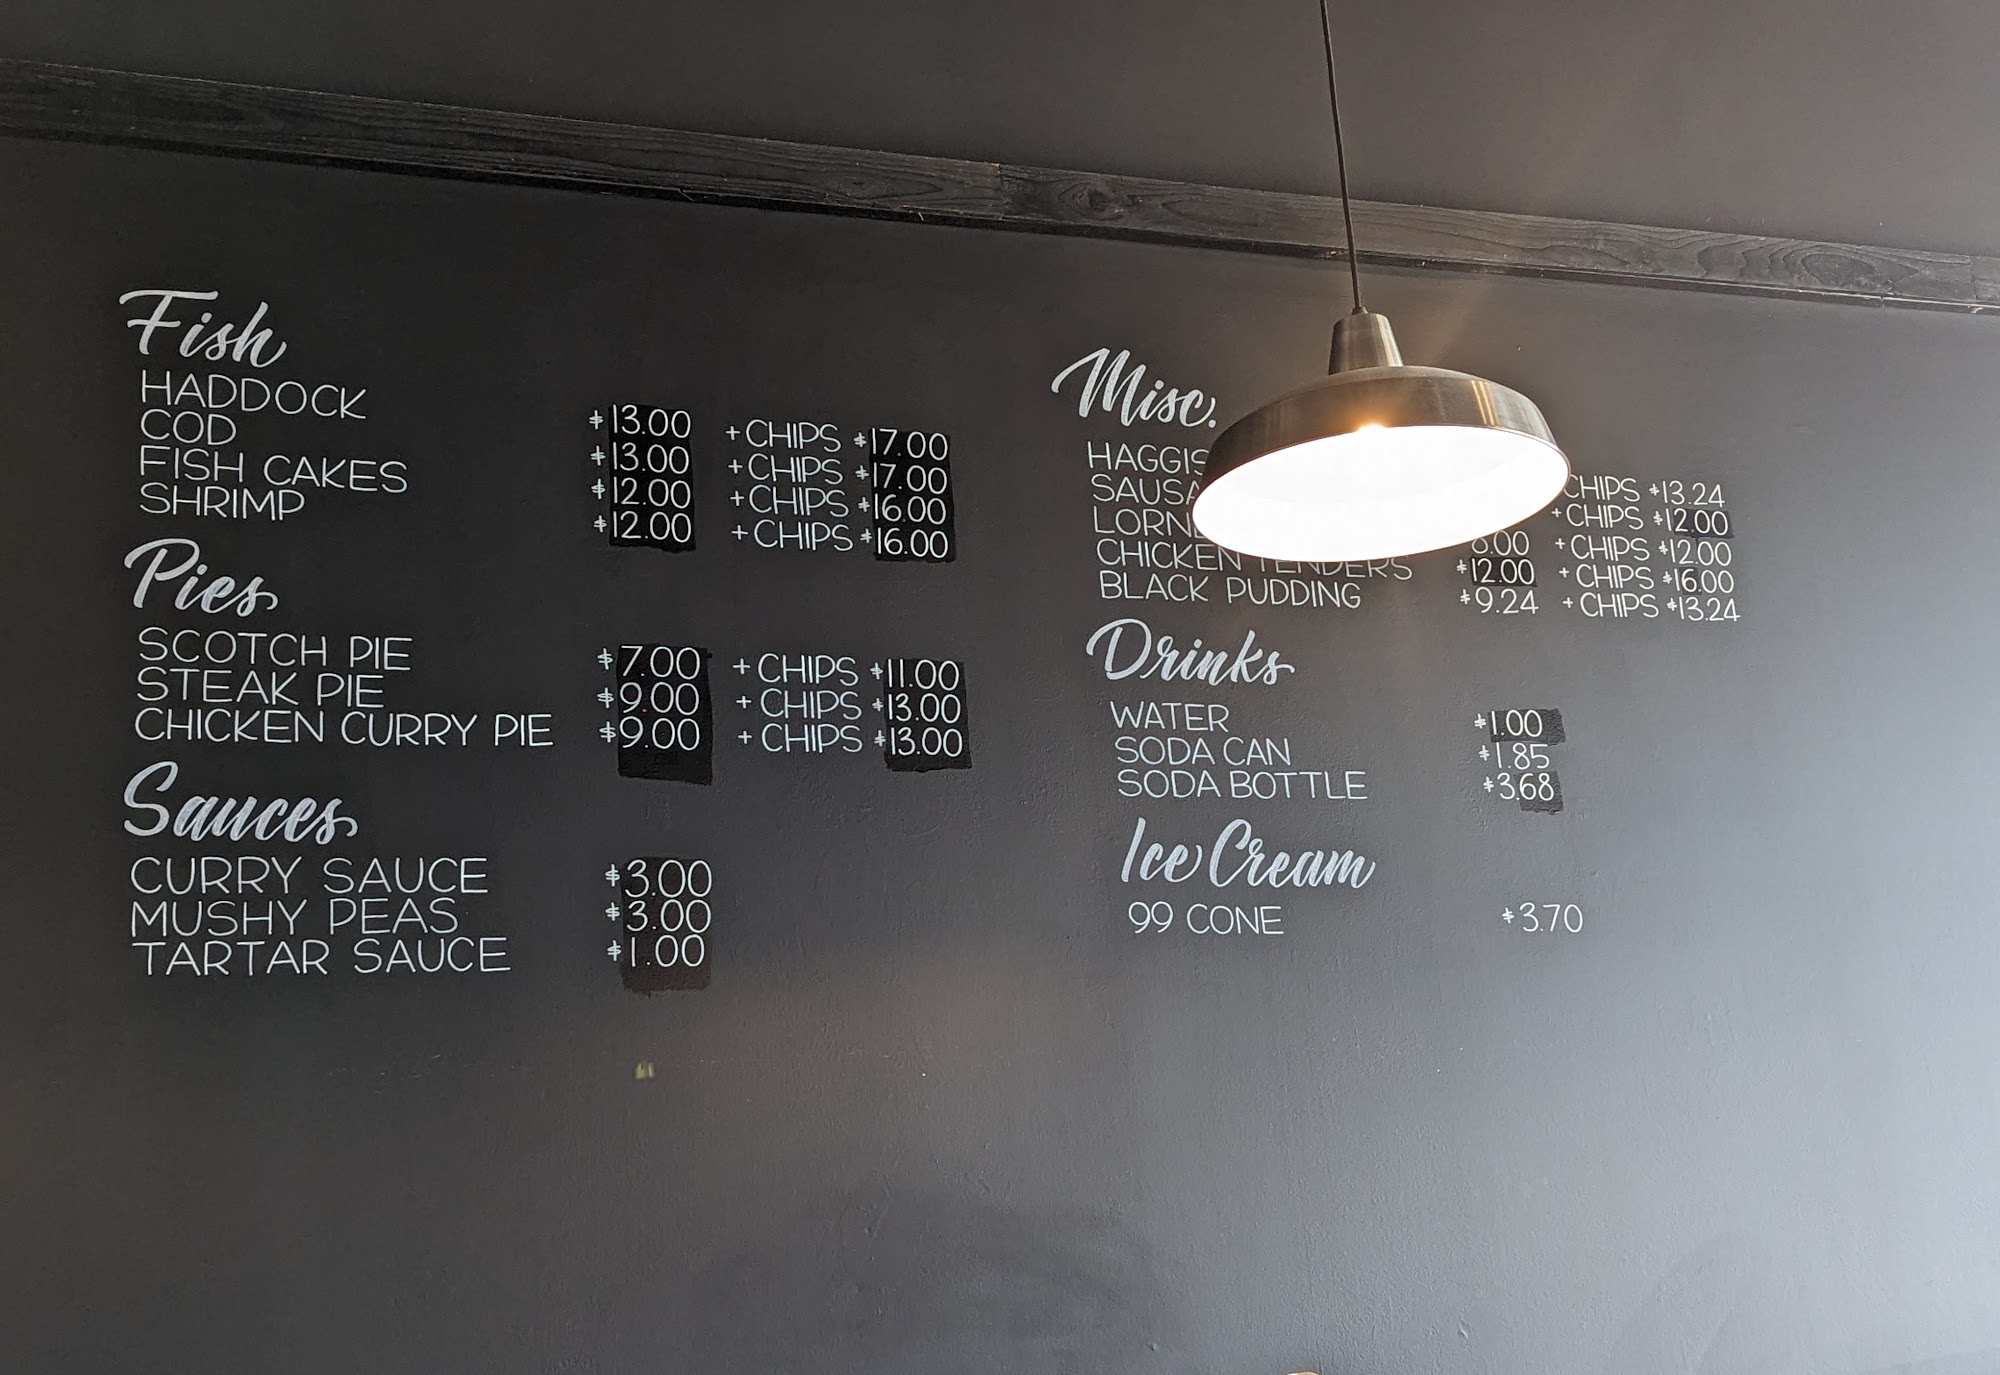 Fish
HADDOCK $13.00 + CHIPS $17.00
COD $13.00 + CHIPS $17.00
FISH CAKES $12.00 + CHIPS $16.00
SHRIMP $12.00 + CHIPS $16.00
Pies
SCOTCH PIE $7.00 + CHIPS $11.00
STEAK PIE $9.00 + CHIPS $13.00
CHICKEN CURRY PIE $9.00 + CHIPS $13.00
Sauces
CURRY SAUCE $3.00
MUSHY PEAS $3.00
TARTAR SAUCE $1.00
Misc.
HAGGIS CHIPS $13.24
+ CHIPS $12.00
8.00 + CHIPS $12.00
CHICKEN TENDERS $12.00 + CHIPS $16.00
BLACK PUDDING $9.24 + CHIPS $13.24
Drinks
WATER $1.00
SODA CAN $1.85
SODA BOTTLE $3.68
Ice Cream
99 CONE $3.70